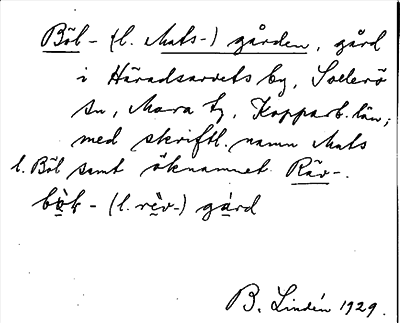 Böl- (l. Mats-) gården, gård
i Häradsarvets by, Sollerö
sn, Mora tg, Kopparb. län;
med skriftl. namn Mats
l. Böl samt öknamnet Räv-.
- (l. rèv-) gård
B. Lindén 1929.